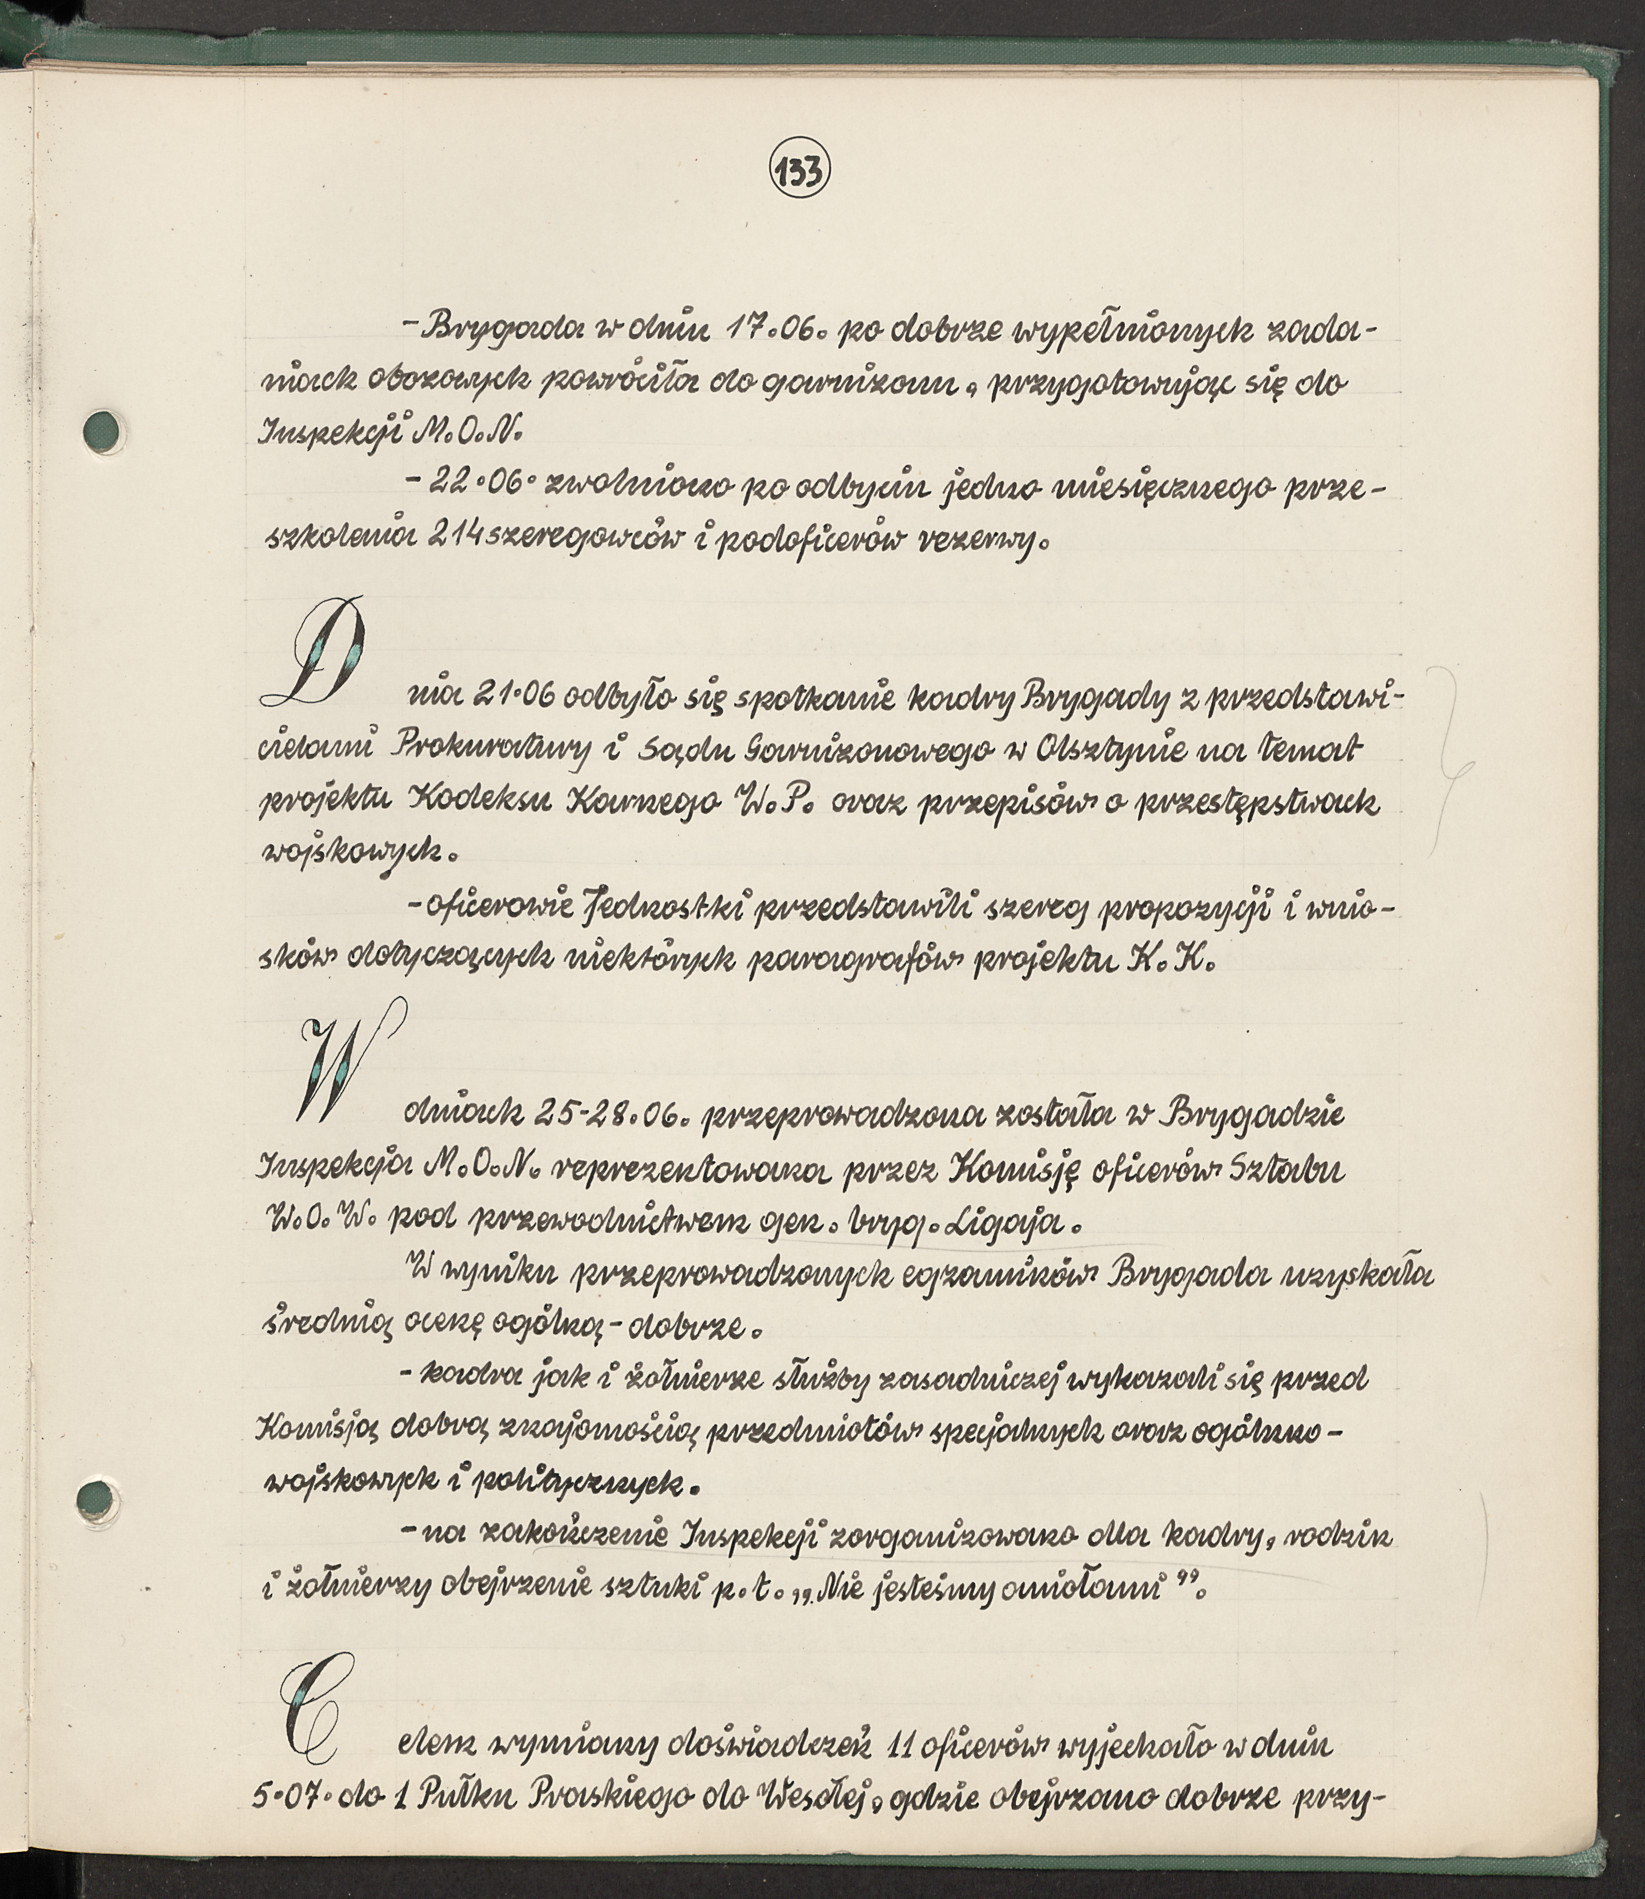 133
- Brygada w dniu 17.06. po dobrze wypełnionych zada-
niach obozowych powróciła do garnizonu, przygotowując się do
Inspekcji M.O.N.
- 22.06. zwolniono po odbyciu jedno miesięcznego prze-
szkolenia 214 szeregowców i podoficerów rezerwy.
Dnia 21.06 odbyło się spotkanie kadry Brygady z przedstawi-
cielami Prokuratury i Sądu Garnizonowego w Olsztynie na temat
projektu Kodeksu Karnego W.P. oraz przepisów o przestępstwach
wojskowych.
- oficerowie Jednostki przedstawili szereg propozycji i wnio-
sków dotyczących niektórych paragrafów projektu K.K.
W dniach 25-28.06. przeprowadzona została w Brygadzie
Inspekcja M.O.N. reprezentowana przez Komisję oficerów Sztabu
W.O.W. pod przewodnictwem gen. bryg. Ligaja.
W wyniku przeprowadzonych egzaminów Brygada uzyskała
średnią ocenę ogólną - dobrze.
- kadra jak i żołnierze służby zasadniczej wykazali się przed
Komisją dobrą znajomością przedmiotów specjalnych oraz ogólno-
wojskowych i politycznych.
- na zakończenie Inspekcji zorganizowano dla kadry, rodzin
i żołnierzy obejrzenie sztuki p.t. „Nie jesteśmy aniołami”.
Celem wymiany doświadczeń 11 oficerów wyjechało w dniu
5.07. do 1 Pułku Praskiego do Wesołej, gdzie obejrzano dobrze przy-